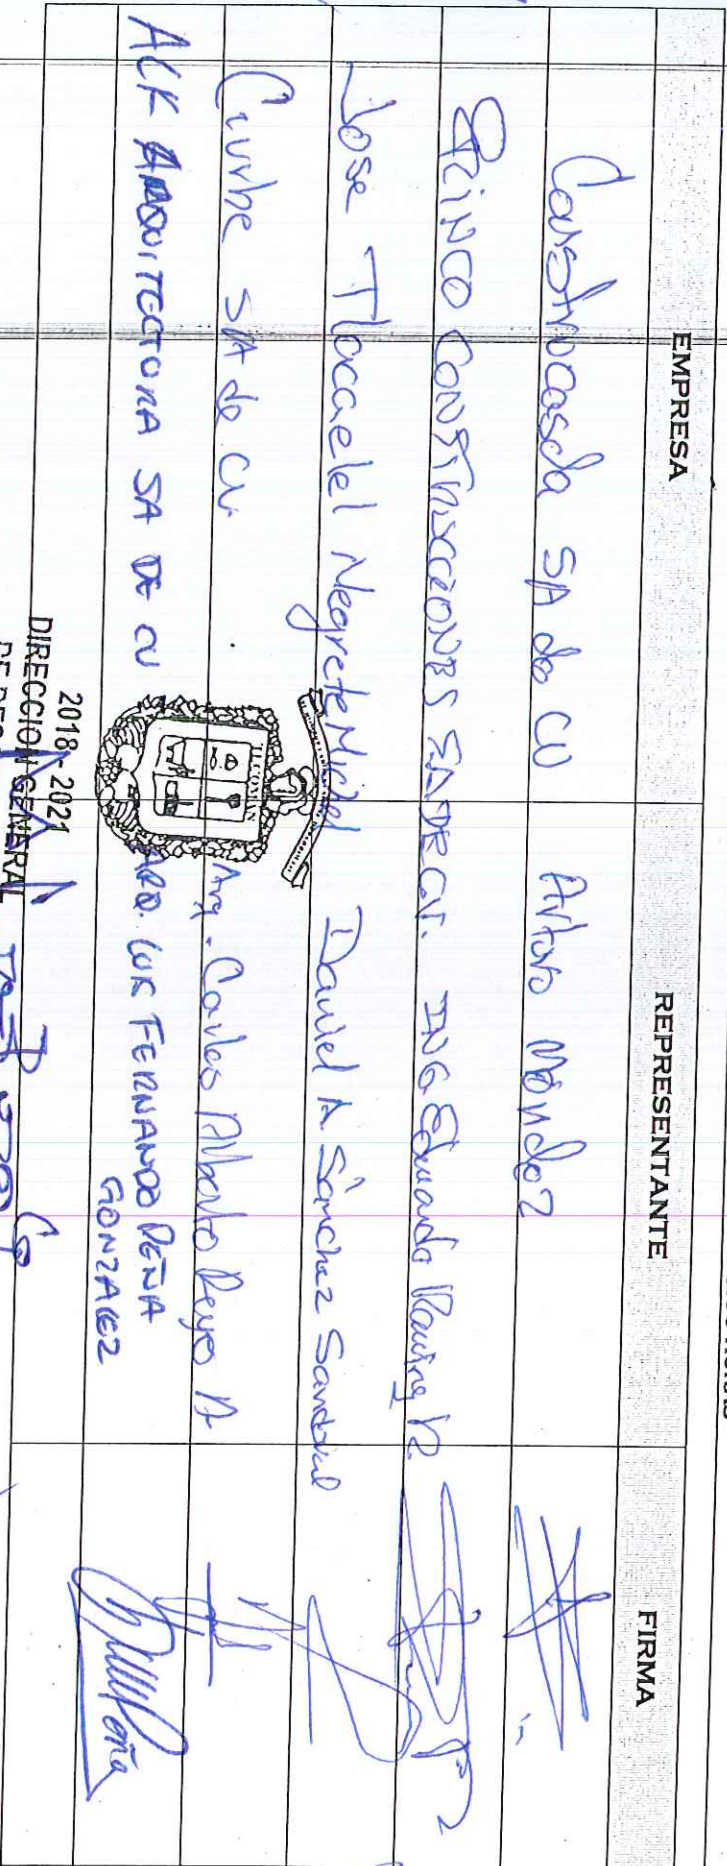 EMPRESA REPRESENTANTE FIRMA
Construcasda SA de CV Arturo Mendoz
CONSTRUCCIONES SA DE CV. ING Eduardo Ramirez R.
Jose Tlacaelel Negrete Michel Daniel A Sánchez Sandoval
Curbe SA de CV Arq. Carlos Alberto Reyo A
ACK ARQUITECTURA SA DE CV ARQ. LUIS FERNANDO PEÑA
GONZALEZ
2018-2021
DIRECCIÓN GENERAL